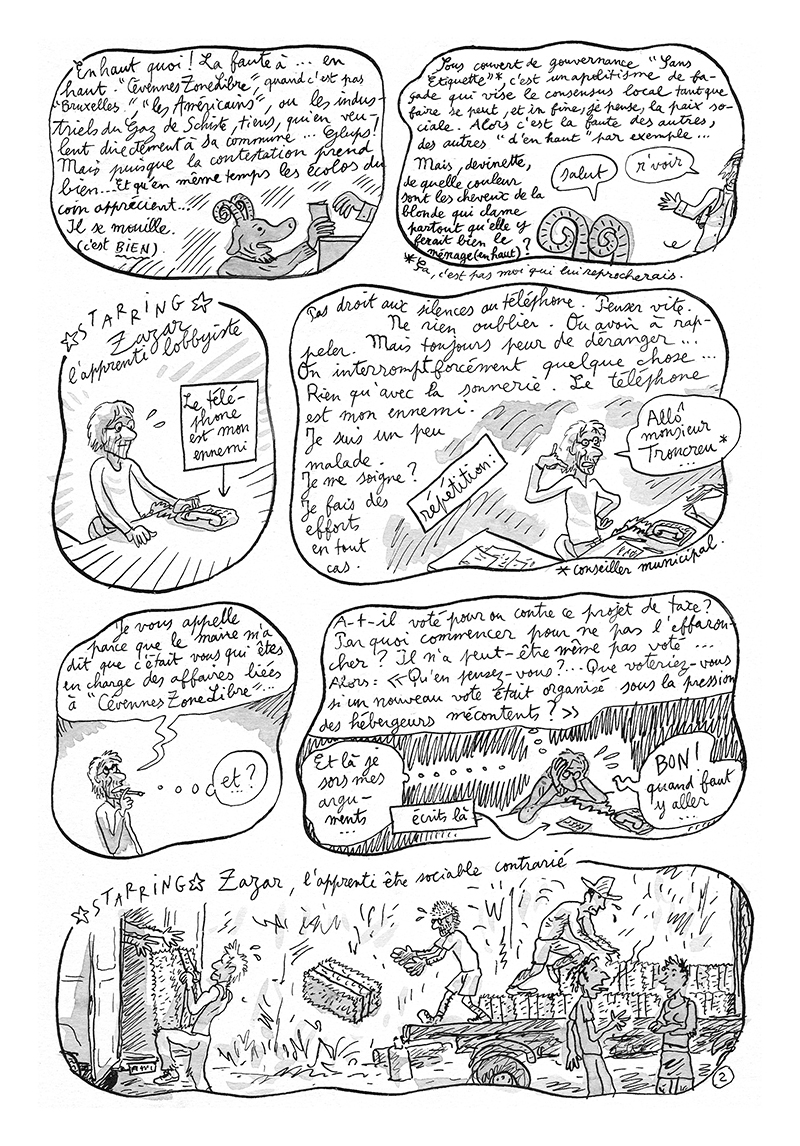 En haut quoi ! La faute à ... en
haut. "Cévennes Zone Libre", quand c'est pas
"Bruxelles", "les Américains", ou les indus-
triels du Gaz de Schiste, tiens, qui en veu-
lent directement à sa commune ... Glups !
Mais puisque la contestation prend
bien... Et qu'en même temps les écolos du
coin apprécient...
Il se mouille.
(c'est BIEN).
Sous couvert de gouvernance "Sans
Étiquette"*, c'est un apolitisme de fa-
çade qui vise le consensus local tant que
faire se peut, et in fine, je pense, la paix so-
ciale. Alors c'est la faute des autres,
des autres "d'en haut" par exemple ...
Mais, devinette,
de quelle couleur
sont les cheveux de la
blonde qui clame
partout qu'elle y
ferait bien le
ménage (en haut) ?
salut
r'voir
* Ça, c'est pas moi qui lui reprocherais.
STARRING
Zazar
l'apprenti lobbyiste
Le télé-
phone
est mon
ennemi
Pas droit aux silences au téléphone. Penser vite.
Ne rien oublier. Ou avoir à rap-
peler. Mais toujours peur de déranger ...
On interrompt forcément quelque chose ...
Rien qu'avec la sonnerie. Le téléphone
est mon ennemi.
Je suis un peu
malade.
Je me soigne ?
Je fais des
efforts
en tout
cas.
répétition.
Allô
monsieur
Troncreu *
...
* conseiller municipal.
Je vous appelle
parce que le maire m'a
dit que c'était vous qui êtes
en charge des affaires liées
à "Cévennes Zone Libre"...
et ?
A-t-il voté pour ou contre ce projet de taxe ?
Par quoi commencer pour ne pas l'effarou-
cher ? Il n'a peut-être même pas voté ...
Alors : « Qu'en pensez-vous ?... Que voteriez-vous
si un nouveau vote était organisé sous la pression
des hébergeurs mécontents ? »
Et là je
sors mes
argu-
ments
...
écrits là
BON !
quand faut
y aller
...
STARRING Zazar, l'apprenti être sociable contrarié
2